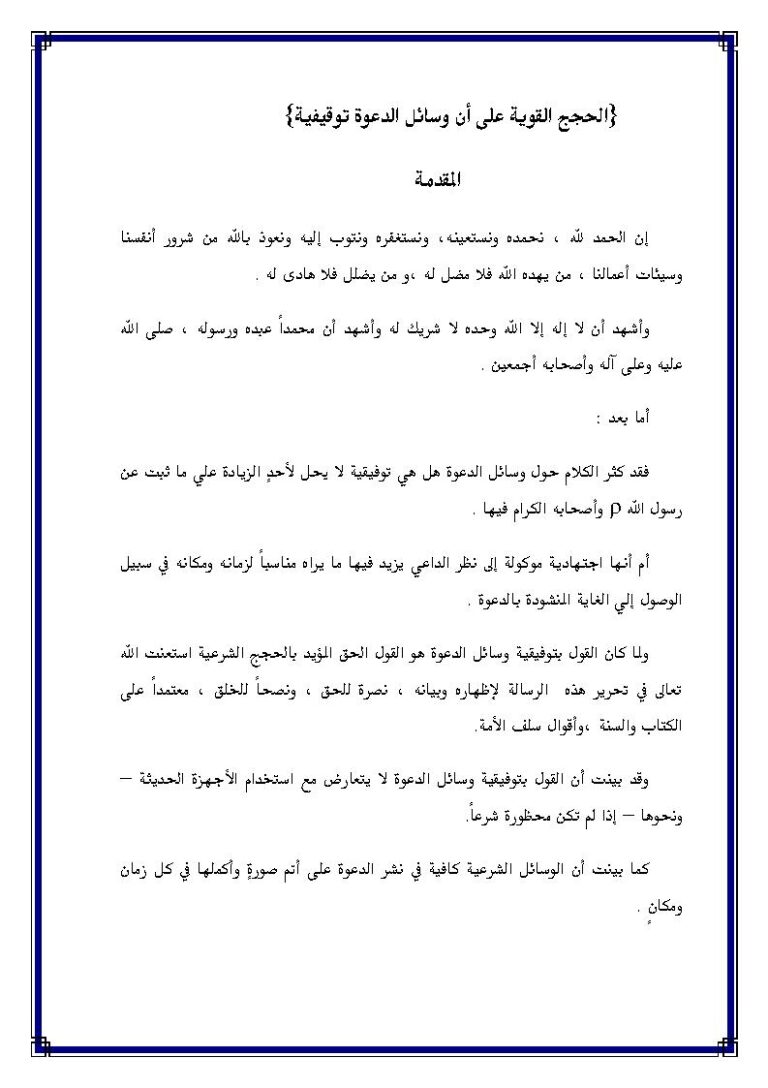 {الحجج القوية على أن وسائل الدعوة توقيفية}
المقدمة
إن الحمد لله ، نحمده ونستعينه، ونستغفره ونتوب إليه ونعوذ بالله من شرور أنفسنا
وسيئات أعمالنا ، من يهده الله فلا مضل له ،و من يضلل فلا هادى له .
وأشهد أن لا إله إلا الله وحده لا شريك له وأشهد أن محمداً عبده ورسوله ، صلى الله
عليه وعلى آله وأصحابه أجمعين .
أما بعد :
فقد كثر الكلام حول وسائل الدعوة هل هي توفيقية لا يحل لأحدٍ الزيادة علي ما ثبت عن
رسول الله ρ وأصحابه الكرام فيها .
أم أنها اجتهادية موكولة إلى نظر الداعي يزيد فيها ما يراه مناسباً لزمانه ومكانه في سبيل
الوصول إلي الغاية المنشودة بالدعوة .
ولما كان القول بتوفيقية وسائل الدعوة هو القول الحق المؤيد بالحجج الشرعية استعنت الله
تعالى في تحرير هذه الرسالة لإظهاره وبيانه ، نصرة للحق ، ونصحاً للخلق ، معتمداً على
الكتاب والسنة ،وأقوال سلف الأمة.
وقد بينت أن القول بتوفيقية وسائل الدعوة لا يتعارض مع استخدام الأجهزة الحديثة –
ونحوها – إذا لم تكن محظورة شرعاً.
كما بينت أن الوسائل الشرعية كافية في نشر الدعوة على أتم صورةٍ وأكملها في كل زمان
ومكانٍ .